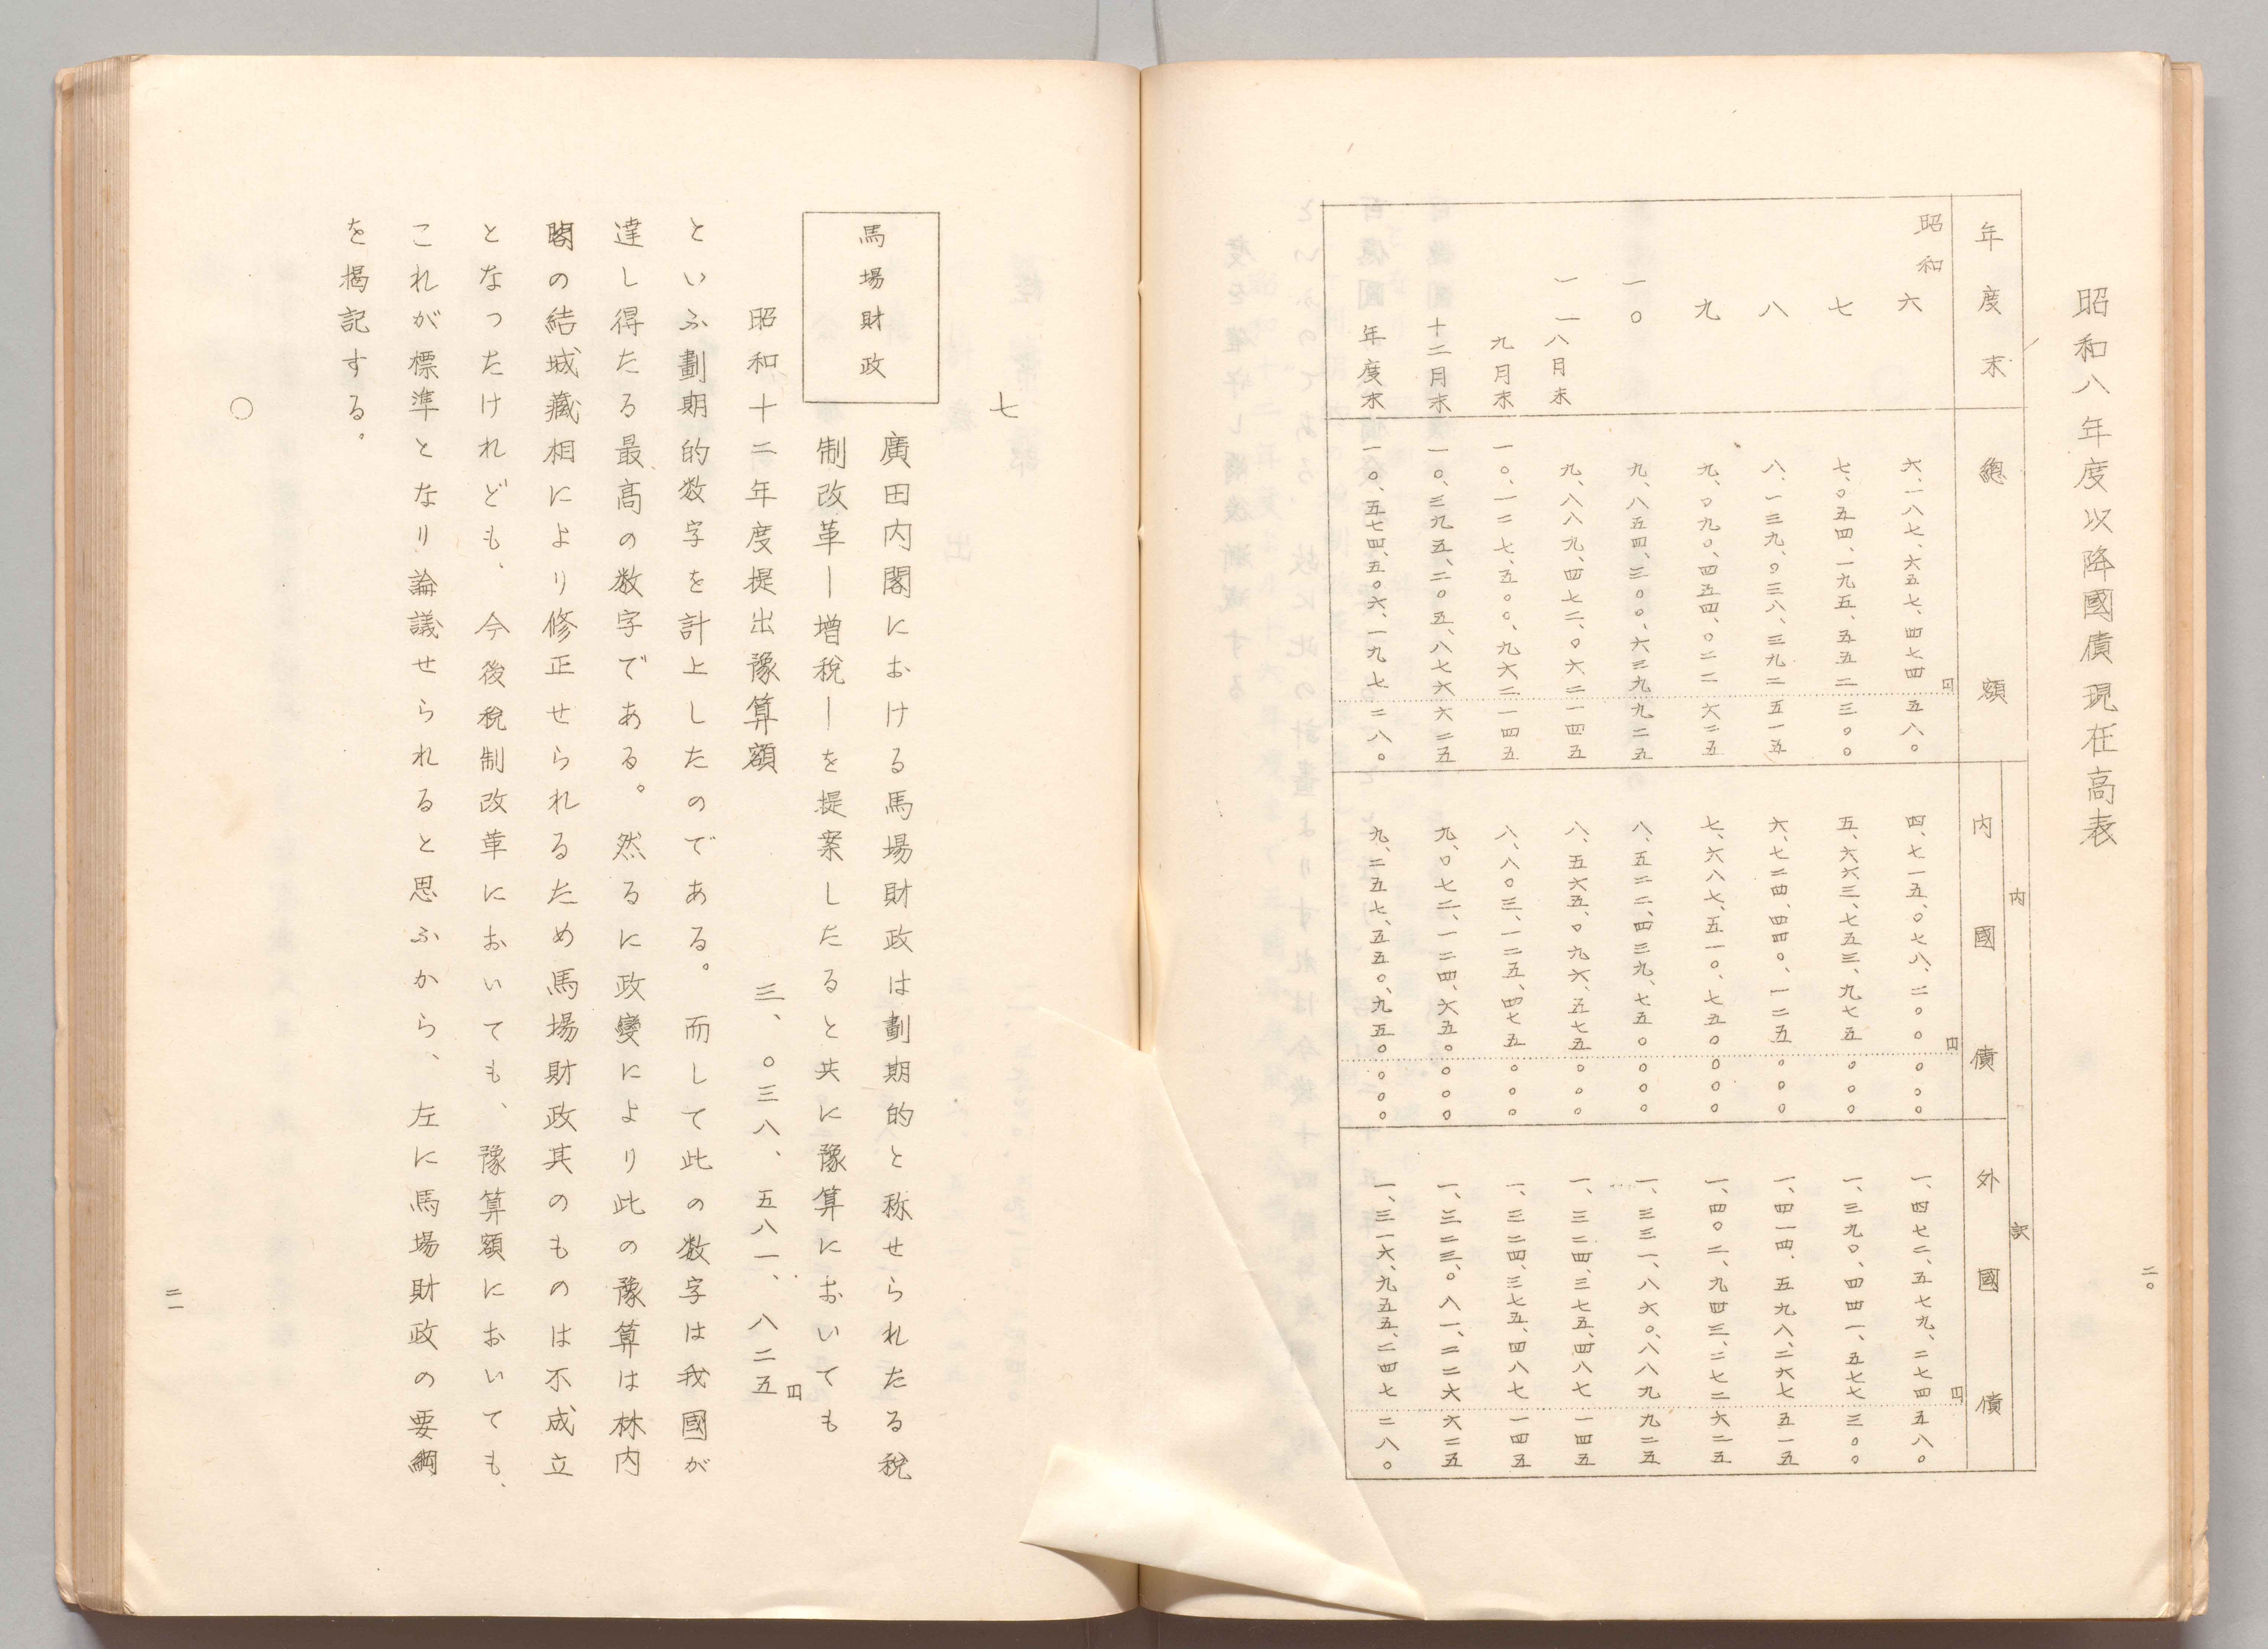 昭和八年度以降國債現在高表
年度末 總額 內譯
內國債 外國債
円 円 円
昭和六 六、一八七、六五七、四七四 五八〇 四、七一五、〇七八、二〇〇 〇〇〇 一、四七二、五七九、二七四 五八〇
七 七、〇五四、一九五、五五二 三〇〇 五、六六三、七五三、九七五 〇〇〇 一、三九〇、四四一、五七七 三〇〇
八 八、一三九、〇三八、三九二 五一五 六、七二四、四四〇、一二五 〇〇〇 一、四一四、五九八、二六七 五一五
九 九、〇九〇、四五四、〇二二 六二五 七、六八七、五一〇、七五〇 〇〇〇 一、四〇二、九四三、二七二 六二五
一〇 九、八五四、三〇〇、六三九 九二五 八、五二二、四三九、七五〇 〇〇〇 一、三三一、八六〇、八八九 九二五
一一八月末 九、八八九、四七二、〇六二 一四五 八、五六五、〇九六、五七五 〇〇〇 一、三二四、三七五、四八七 一四五
九月末 一〇、一二七、五〇〇、九六二 一四五 八、八〇三、一二五、四七五 〇〇〇 一、三二四、三七五、四八七 一四五
十二月末 一〇、三九五、二〇五、八七六 六二五 九、〇七二、一二四、六五〇 〇〇〇 一、三二三、〇八一、二二六 六二五
年度末 一〇、五七四、五〇六、一九七 二八〇 九、二五七、五五〇、九五〇 〇〇〇 一、三一六、九五五、二四七 二八〇
二〇
七
馬場財政
廣田内閣における馬場財政は劃期的と称せられたる稅
制改革―増稅―を提案したると共に豫算においても
昭和十二年度提出豫算額 三、〇三八、五八一、八二五円
といふ劃期的数字を計上したのである。而して此の数字は我國が
達し得たる最高の数字である。然るに政變により此の豫算は林内
閣の結城藏相により修正せられるため馬場財政其のものは不成立
となつたけれども、今後稅制改革においても、豫算額においても、
これが標準となり論議せられると思ふから、左に馬場財政の要綱
を揭記する。
〇
二一